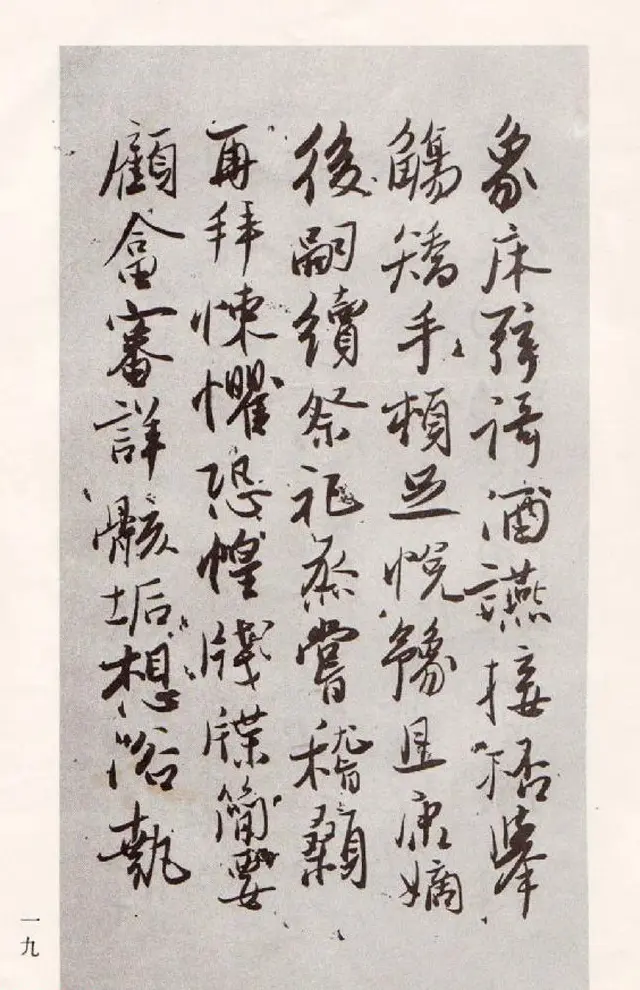 象床弦謌酒讌接桮舉
觴矯手頓足悅豫且康嫡
後嗣續祭祀蒸嘗稽顙
再拜悚懼恐惶牋牒簡要
顧畣審詳骸垢想浴執
一九